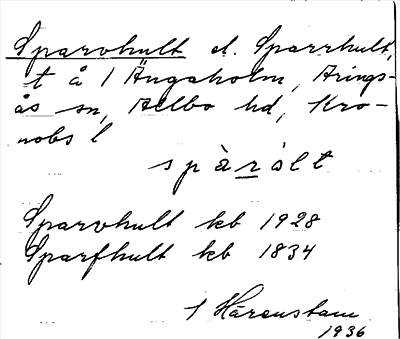 Sparvhult el. Sparrhult,
t å 1 Ängaholm, Arings-
ås sn, Allbo hd, Kro-
nobs l
spàrált
Sparvhult kb 1928
Sparfhult kb 1834
1 Hårenstam
1936